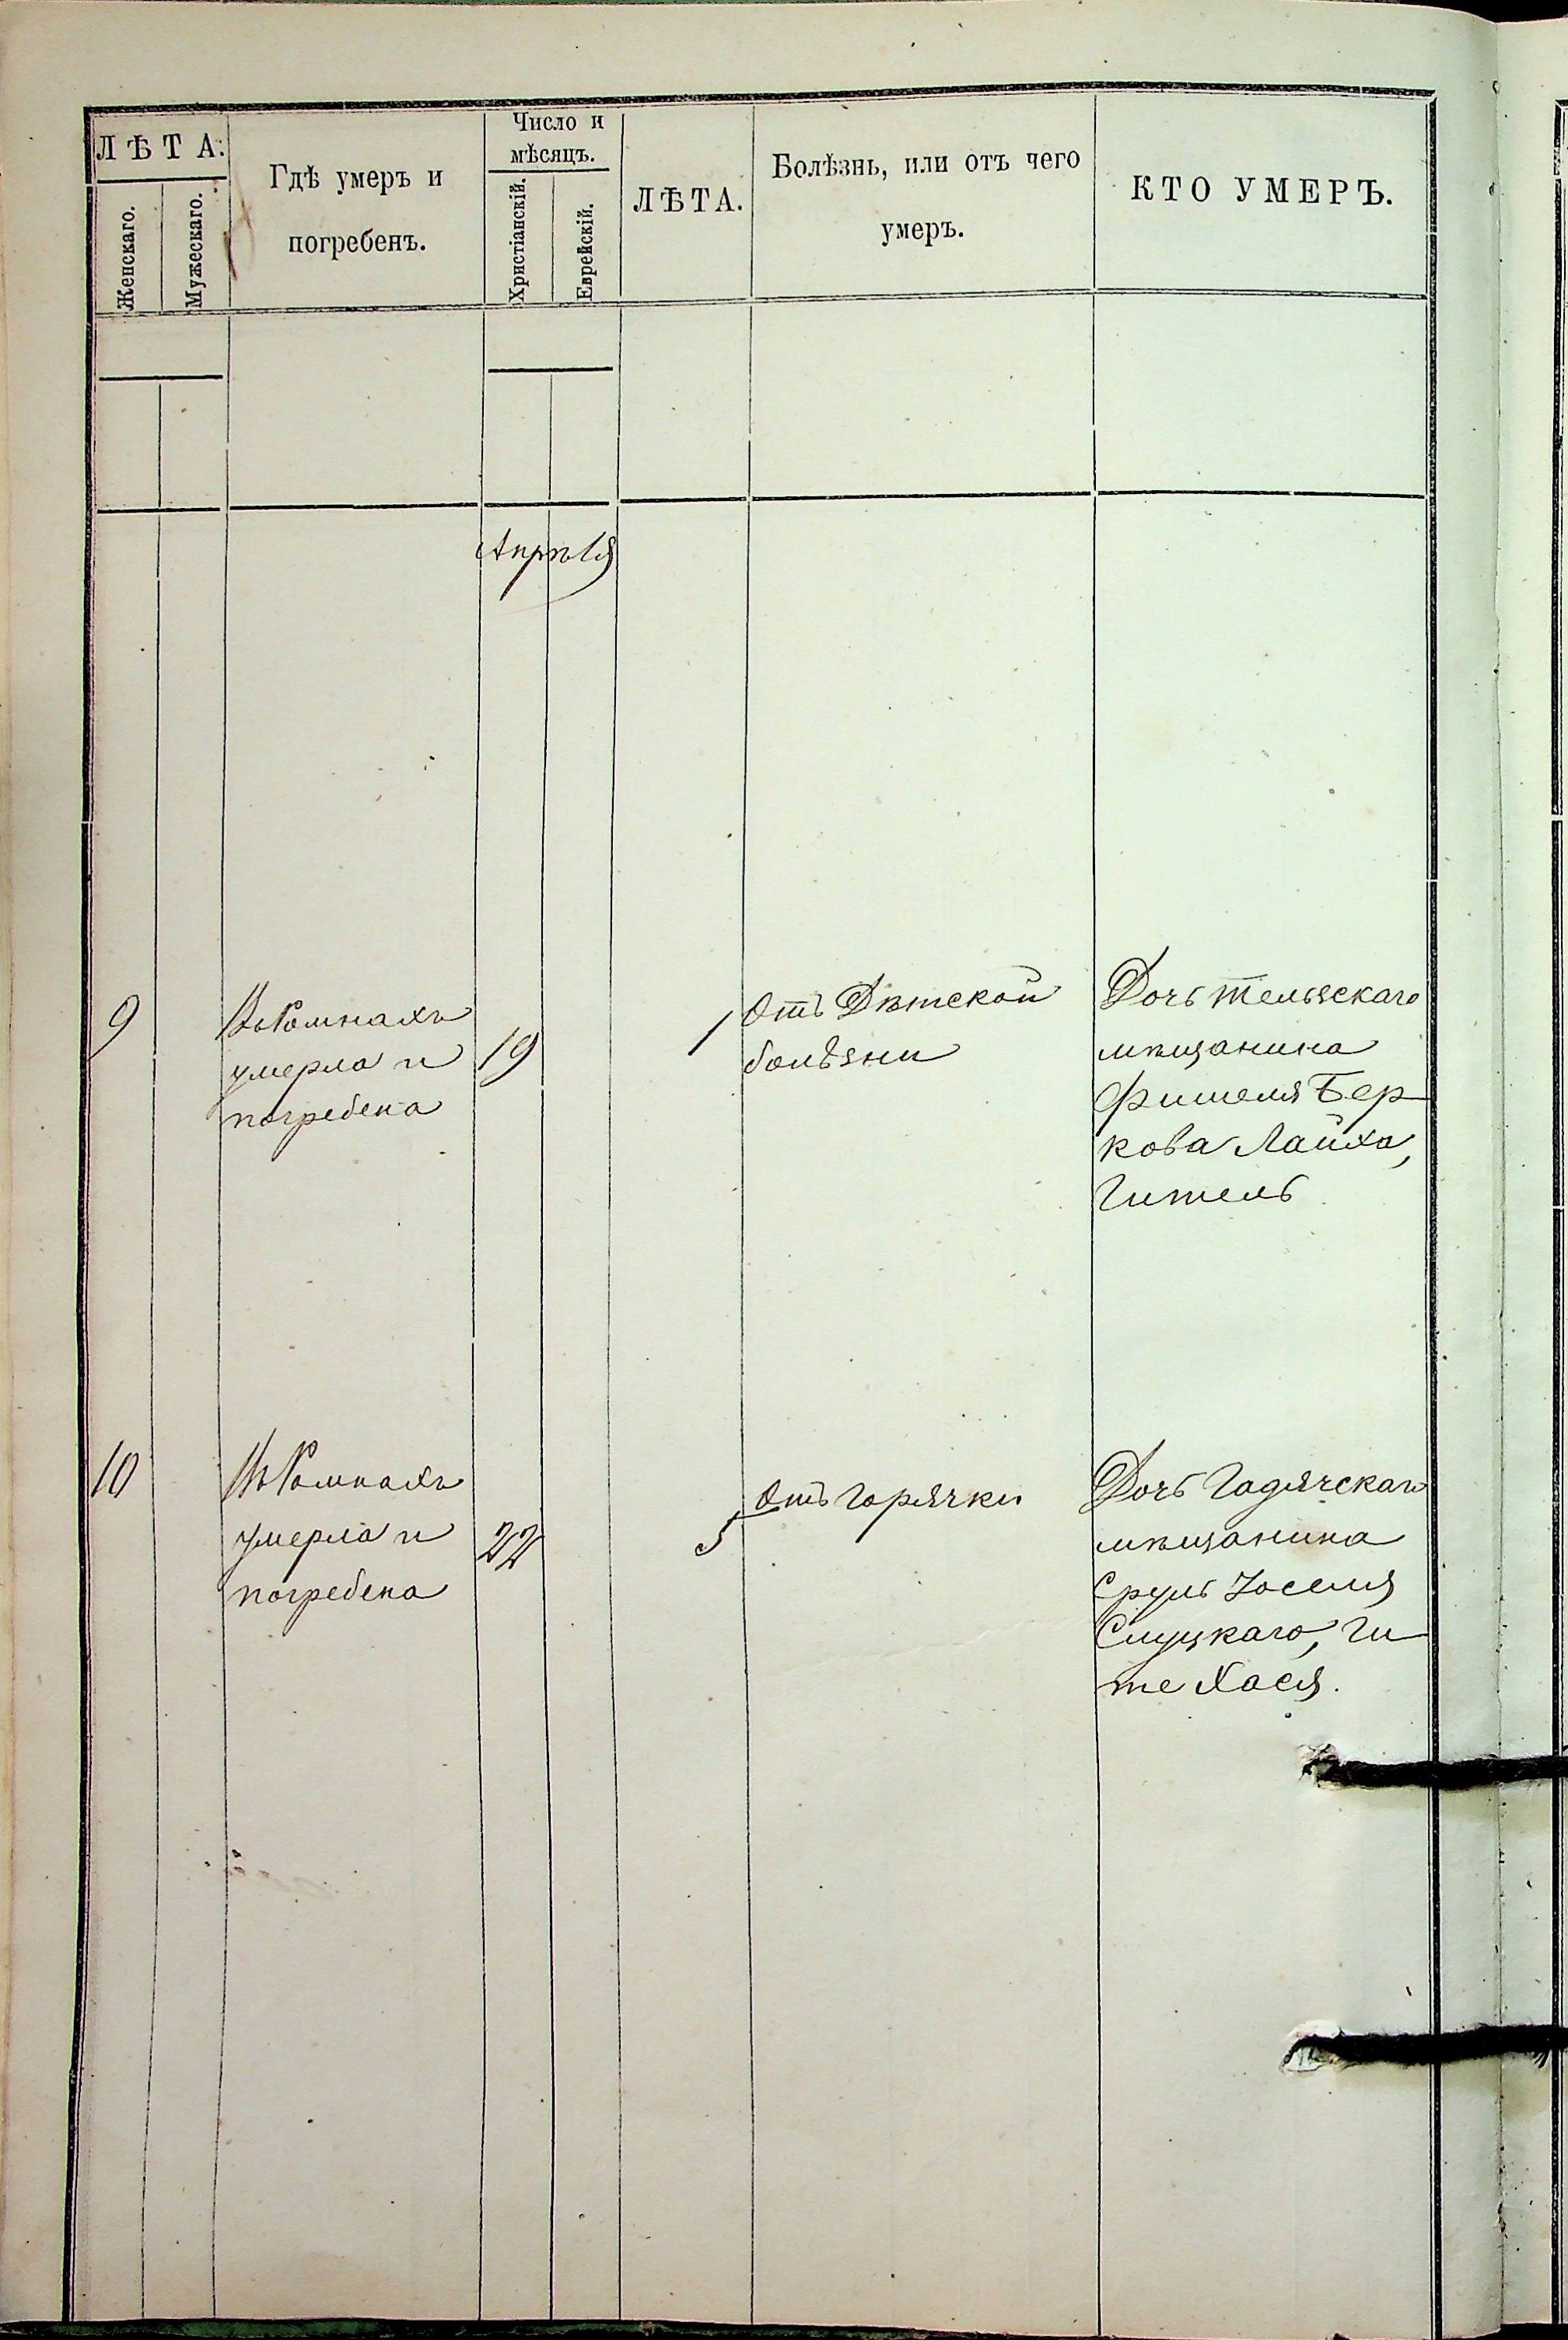 ЛѢТА.
Женскаго.
Мужескаго.
Гдѣ умеръ и
погребенъ.
Число и
мѣсяцъ.
Христіанскій.
Еврейскій.
ЛѢТА.
Болѣзнь, или отъ чего
умеръ.
КТО УМЕРЪ.
Апрѣля
9
Въ Ромнахъ
умерла и
погребена
19
1
Отъ Дѣтской
болѣзни
Дочь Тельзскаго
мѣщанина
Фишеля Бер-
кова Лайха,
Гитель
10
Въ Ромнахъ
умерла и
погребена
22
5
Отъ горячки
Дочь Гадячскаго
мѣщанина
Сруль Іоселя
Слуцкаго, Ги-
те Хася.